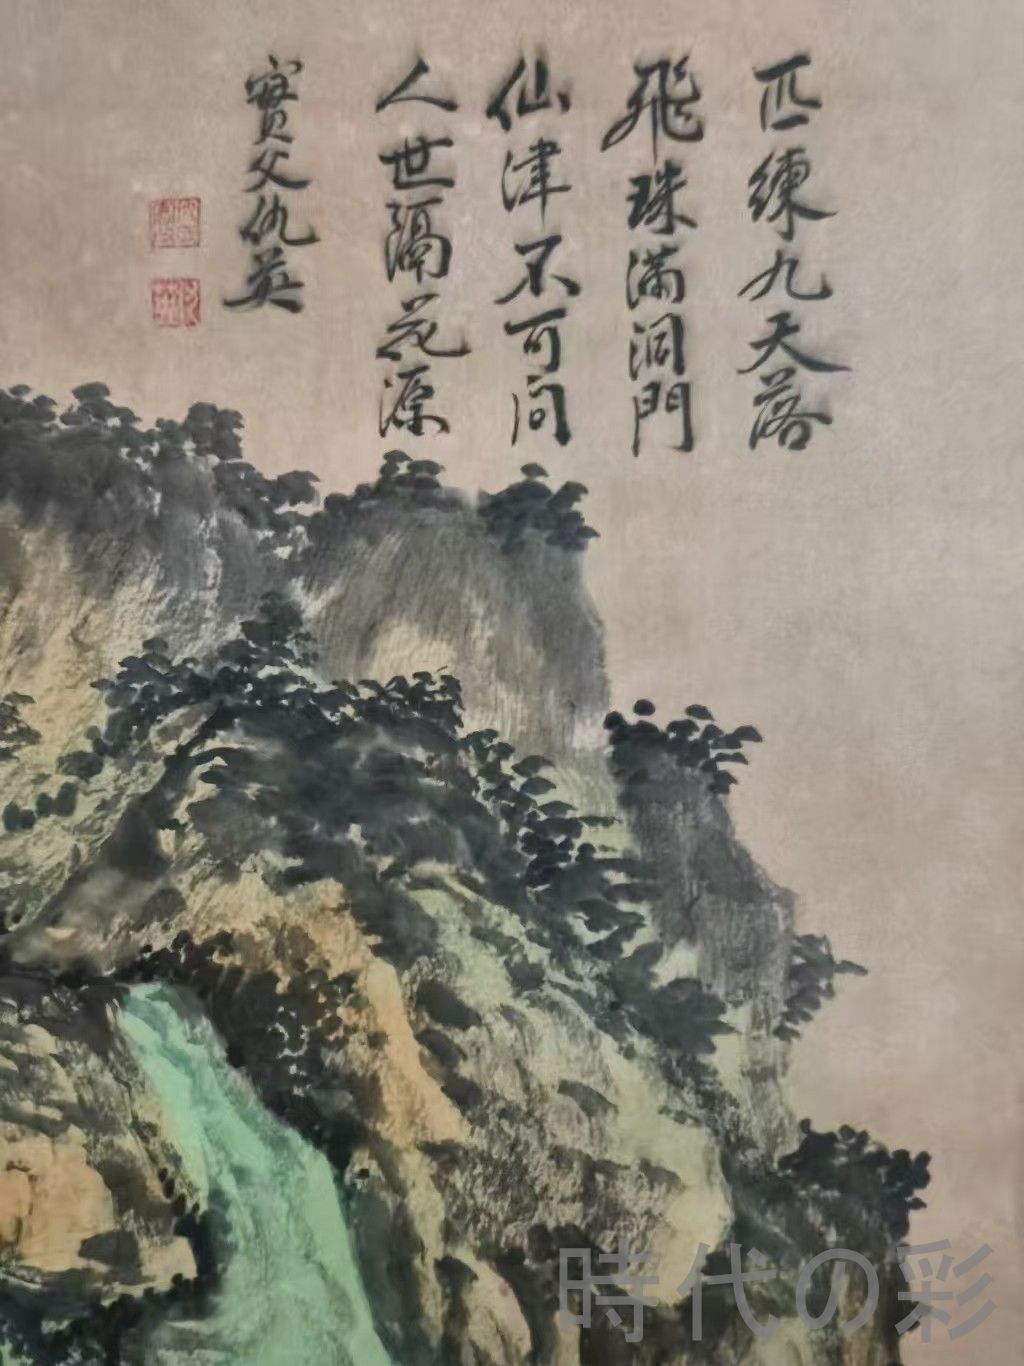 匹練九天落
飛珠滿洞門
仙津不可问
人世隔花源
實父仇英
時代の彩